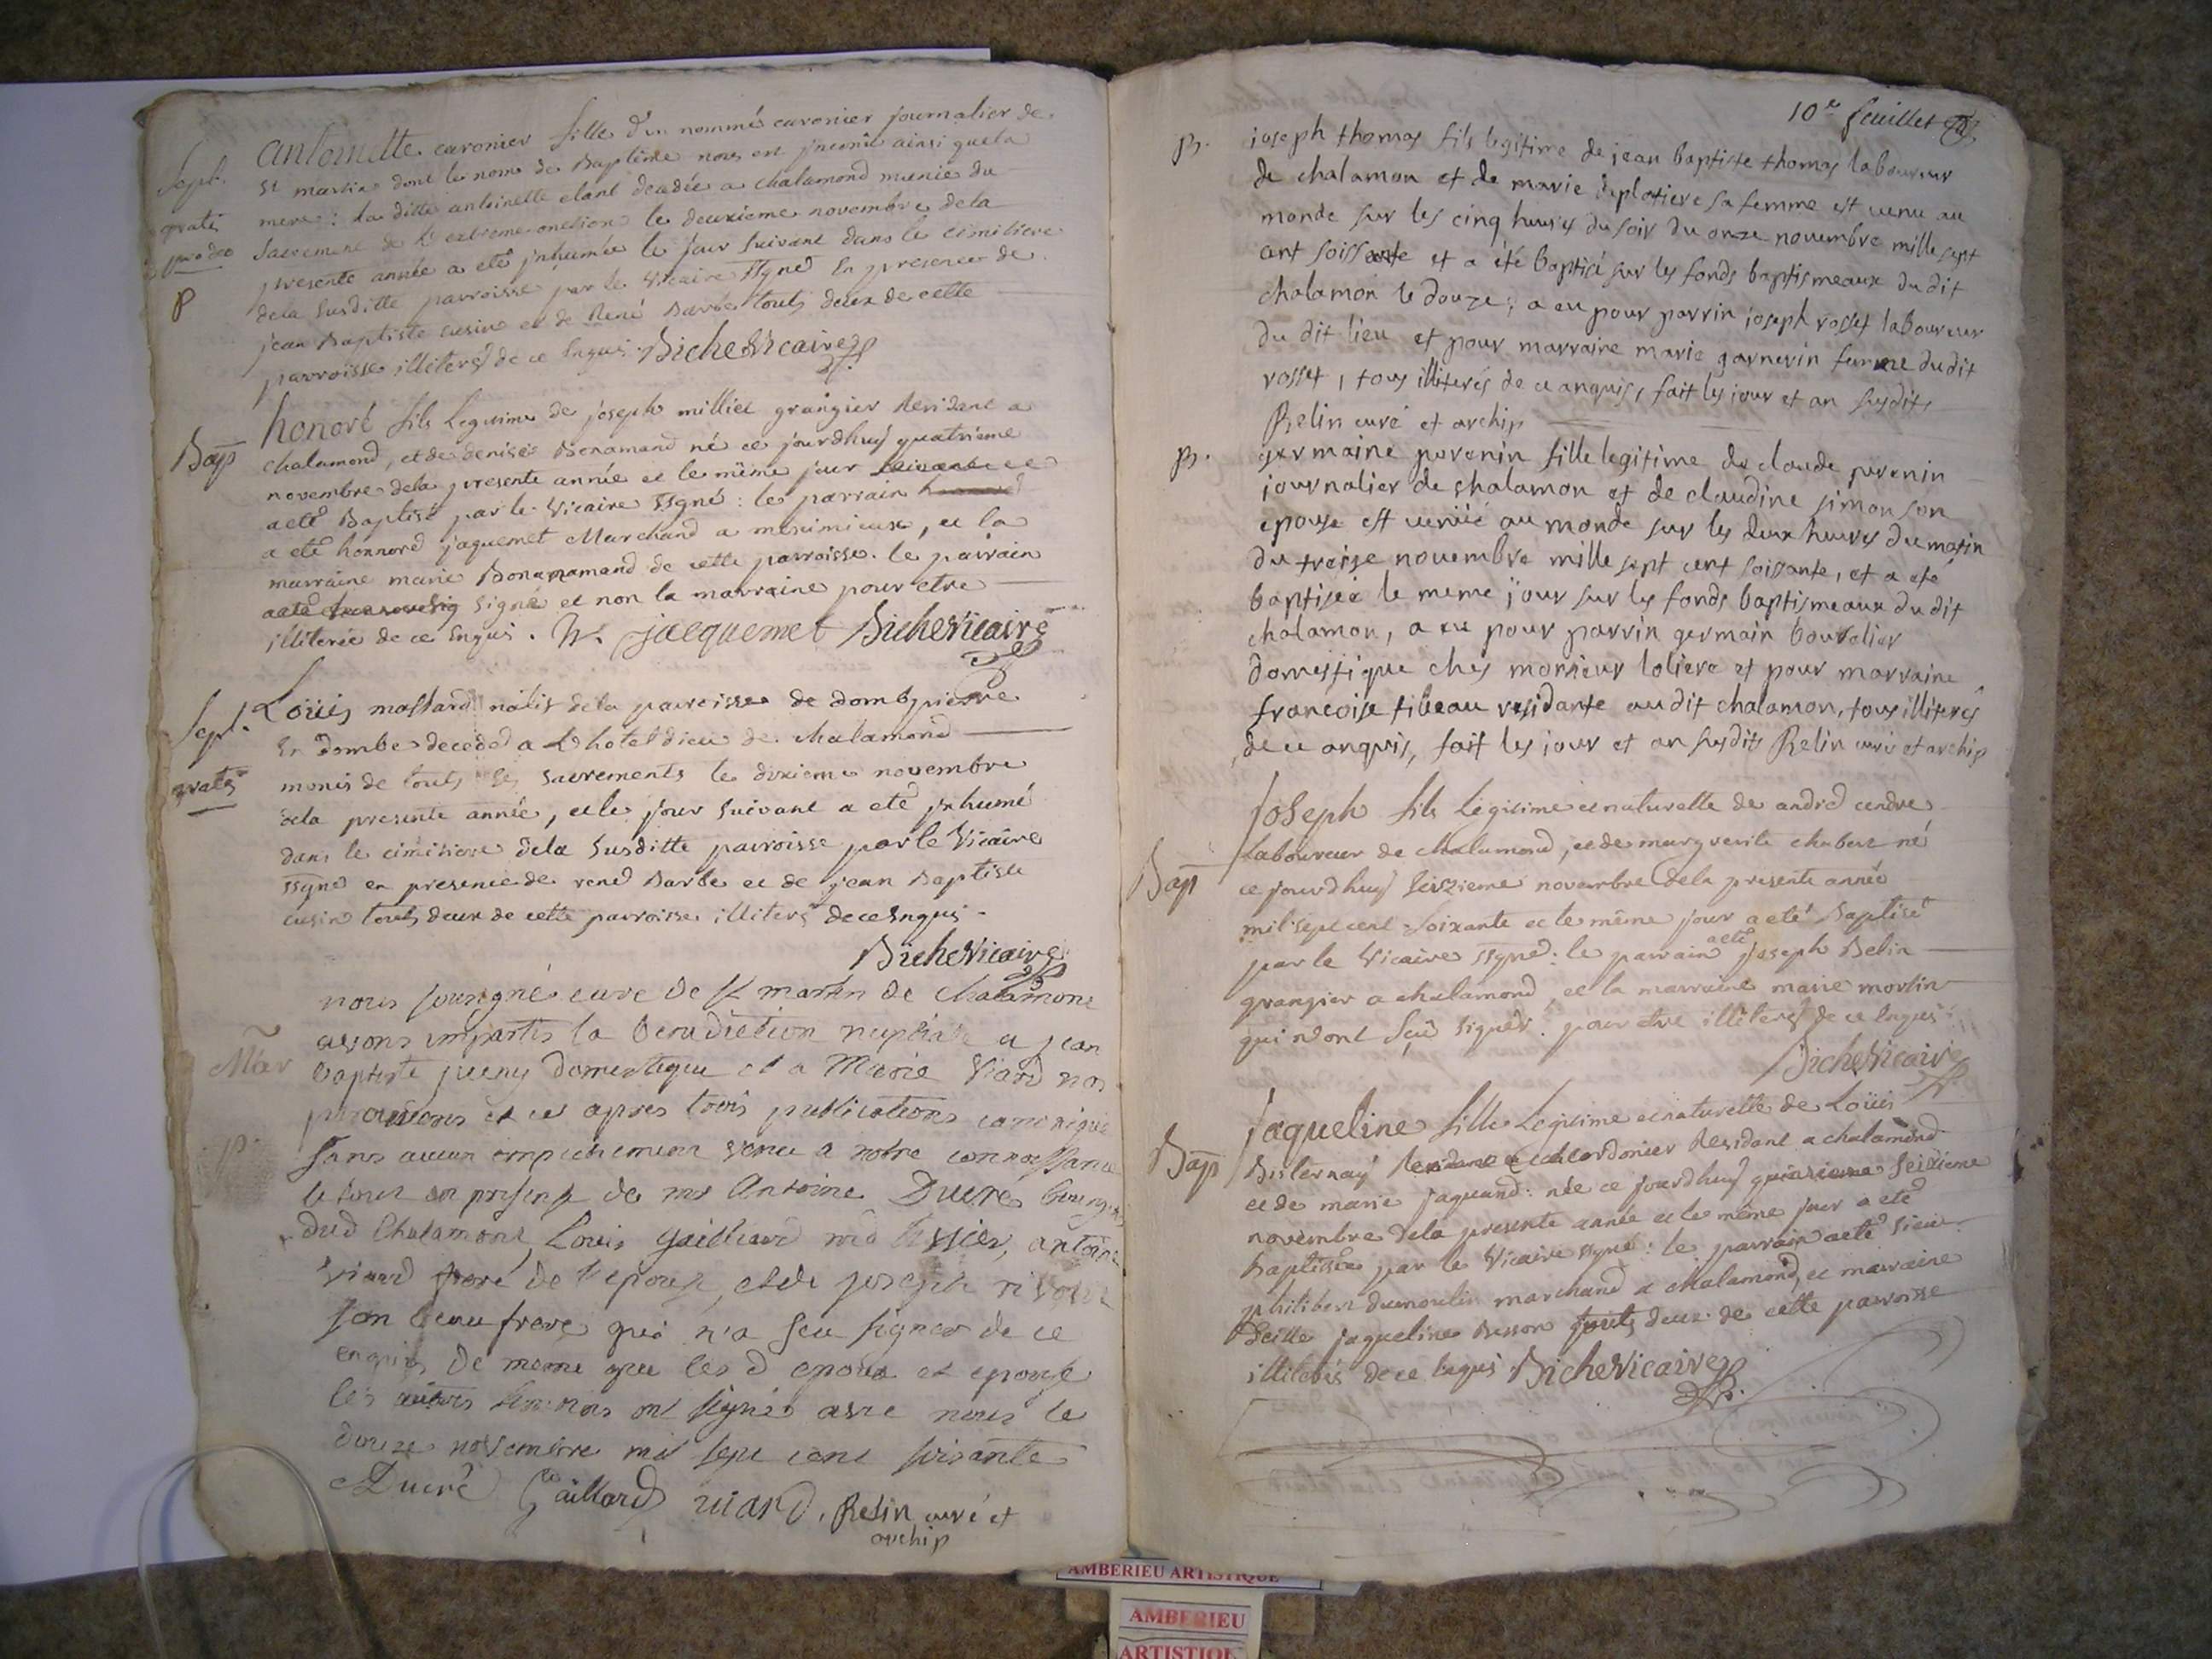 Sept.
gratis
pro deo
p
antoinette caronier fille d'un nommé caronier journalier de
st martin dont le nom de Baptême nous est jnconnu ainsi que la
mere : la ditte antoinette etant decedée a chalamond munie du
sacrement de l'extreme-onction le deuxieme novembre dela
presente année a eté jnhumée le jour suivant dans le cimitiere
dela susditte parroisse par le vicaire ssgné En presence de
jean Baptiste cusin et de René Barbe touts deux de cette
parroisse illiterés de ce Enquis. Biche Vicaire
Bap
honoré fils Legitime de joseph milliet grangier Residant a
chalamond, et de denise Bonamand né ce jourdhuy quatrieme
novembre dela presente année et le même jour
a eté Baptisé par le vicaire ssgné : le parrain
a eté honnoré jaquemet Marchand a meximieux, et la
marraine marie Bonamand de cette parroisse. le parrain
a signé et non la marraine pour etre
illiterée de ce Enquis. h. jacquemet Biche Vicaire
Sept.
gratis
Loüis mastard natif dela parroisse de dompierre
En dombe decedé a L'hotel dieu de chalamond
munis de touts les sacrements le dixieme novembre
dela presente année, et le jour suivant a eté jnhumé
dans le cimitiere dela susditte parroisse par le vicaire
ssgné en presence de rené Barbe et de jean Baptiste
cusin touts deux de cette parroisse illiterés de ce Enquis.
Biche Vicaire
Mar
p.
nous sousigné curé de st martin de chalamont
avons imparti la benediction nuptiale a jean
baptiste domestique et a Marie Viard nos
paroissiens et ce apres trois publications canonique
sans aucun empechement venu a notre connoissance
le tout en presence de mr Antoine Ducré bourgeois
dud Chalamont, Louis Gaillard md tissier, antoine
viard frere de l'epouse, et de joseph
son beau frere qui n'a seu signer de ce
enquis de meme que les d epoux et epouse
les autres temoins ont signé avec nous le
douze novembre mil sept cent soixante
Ducré Gaillard viard. Relin curé et
archip
10e feuillet
B.
joseph thomas fils legitime de jean baptiste thomas laboureur
de chalamon et de marie deplatiere sa femme est venu au
monde sur les cinq heures du soir du onze novembre mille sept
cent soissante et a été baptisé sur les fonds baptismeaux du dit
chalamon le douze ; a eu pour parrin joseph rosset laboureur
du dit lieu et pour marraine marie garnerin femme du dit
rosset, tous illiterés de ce anquis, fait les jour et an susdits
Relin curé et archip
B.
germaine perenin fille legitime de claude perenin
journalier de chalamon et de claudine simon son
epouse est venüe au monde sur les deux heures du matin
du treise novembre mille sept cent soissante, et a eté
baptisée le meme jour sur les fonds baptismeaux du dit
chalamon, a eu pour parrin germain bourelier
domestique ches monsieur loliere et pour marraine
francoise tibeau residante au dit chalamon, tous illiterés
de ce anquis, fait les jour et an susdits Relin curé et archip
Bap
Joseph fils Legitime et naturelle de andré cendre
Laboureur de chalamond, et de marguerite chabert né
ce jourd'huy novembre dela presente année
mil sept cent soixante et le même jour a eté Baptisé
par le vicaire ssgné : le parrain a eté joseph Belin
grangier a chalamond, et la marraine marie morlin
qui n'ont sçû signer pour etre illiterés de ce Enquis.
Biche Vicaire
Bap
Jaqueline fille Legitime et naturelle de Loüis
cordonier Residant a chalamond
et de marie jaquand : née ce jourdhuy quinzieme seizieme
novembre dela presente année et le même jour a eté
baptisée par le vicaire ssgné : le parrain a eté sieur
philibert dumoulin marchand a chalamond, et marraine
jaqueline Besson touts deux de cette parroisse
illiterés de ce Enquis Biche Vicaire
AMBERIEU ARTISTIQUE
AMBERIEU
ARTISTIQUE